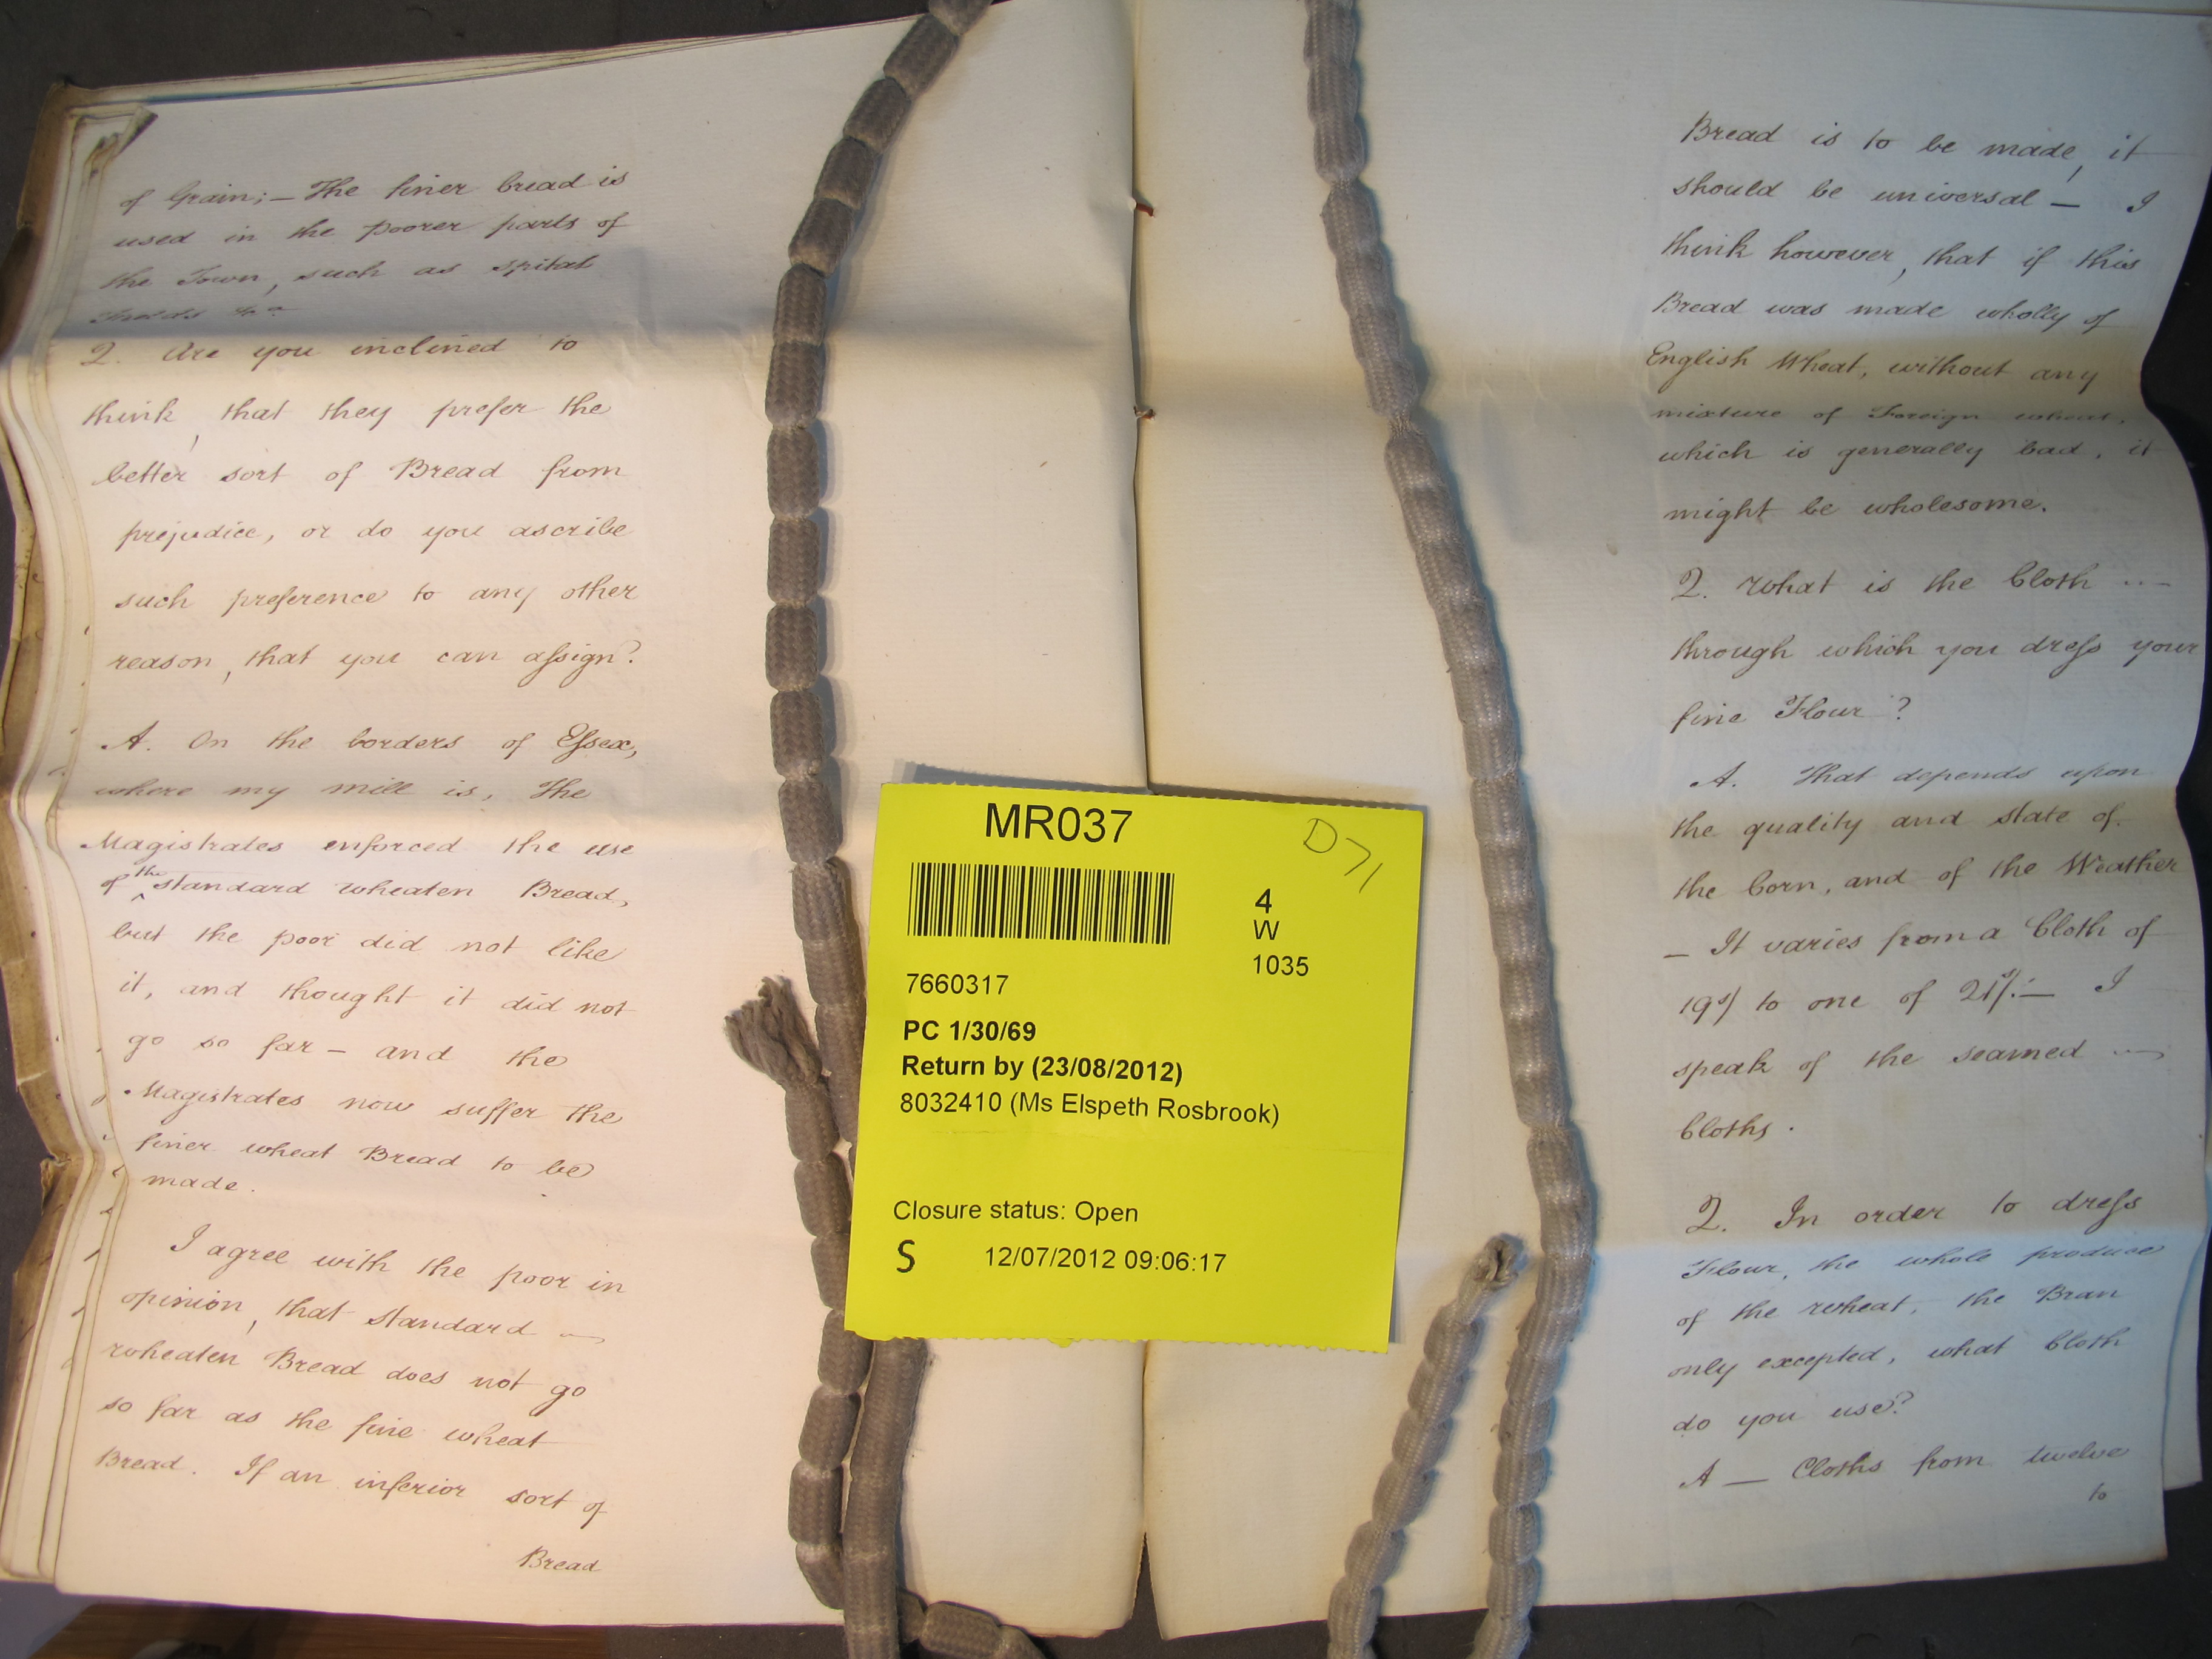 of Grain; — The finer bread is
used in the poorer parts of
the Town, such as Spital
Fields &ca
Q. Are you inclined to
think, that they prefer the
better sort of Bread from
prejudice, or do you ascribe
such preference to any other
reason, that you can aſsign?
A. On the borders of Eſsex,
where my mill is, The
Magistrates enforced the use
of the standard wheaten Bread,
but the poor did not like
it, and thought it did not
go so far — and the
Magistrates now suffer the
finer wheat Bread to be
made.
I agree with the poor in
opinion, that standard
wheaten Bread does not go
so far as the fine wheat
Bread. If an inferior sort of
Bread
MR037
D71
4
W
1035
7660317
PC 1/30/69
Return by (23/08/2012)
8032410 (Ms Elspeth Rosbrook)
Closure status: Open
S 12/07/2012 09:06:17
Bread is to be made, it
should be universal — I
think however, that if this
Bread was made wholly of
English Wheat, without any
mixture of Foreign wheat,
which is generally bad, it
might be wholesome.
Q. What is the Cloth
through which you dreſs your
fine Flour?
A. That depends upon
the quality and state of
the Corn, and of the Weather
— It varies from a Cloth of
19s/ to one of 21s/. — I
speak of the seamed
Cloths.
Q. In order to dreſs
Flour, the whole produce
of the wheat, the Bran
only excepted, what Cloth
do you use?
A — Cloths from twelve
to